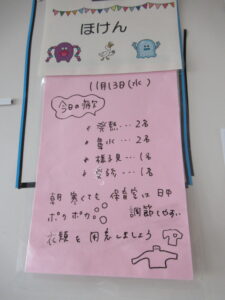 ほけん
11月13日(水)
今日の病欠
発熱…2名
鼻水…2名
様子見…1名
受診…1名
朝寒くても保育室は日中
ポカポカ 調節しやすい
衣類を用意しましょう